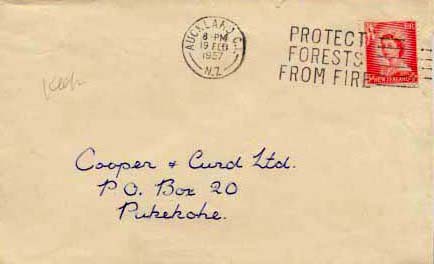 AUCKLAND C.1
8 - PM
19 FEB
1957
N.Z.
PROTECT
FORESTS
FROM FIRE
NEW ZEALAND
Cooper & Curd Ltd.
P.O. Box 20
Pukekohe.